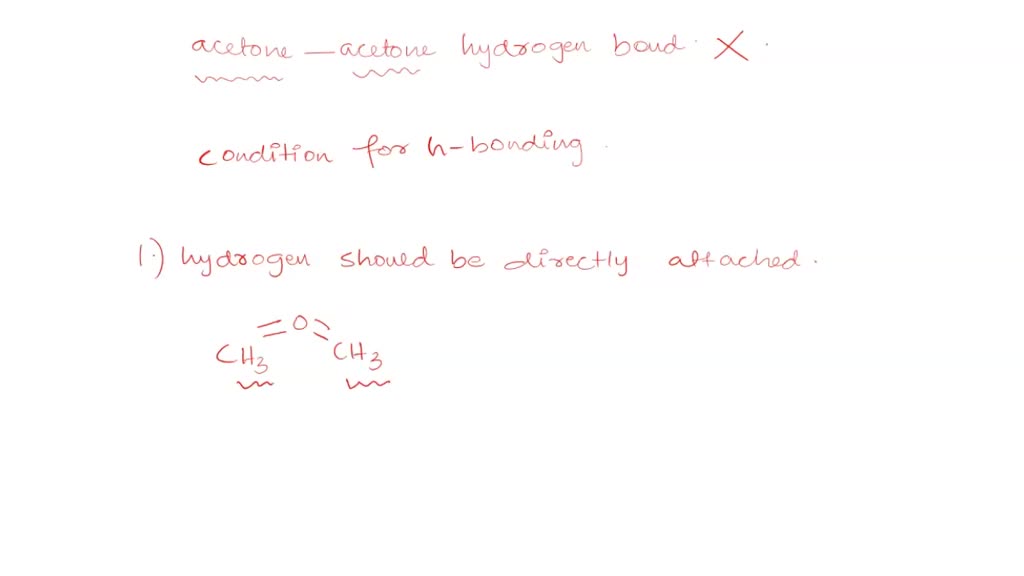 acetone — acetone hydrogen bond. X.
condition for h-bonding.
1.) hydrogen should be directly attached.
=O=
CH3 CH3